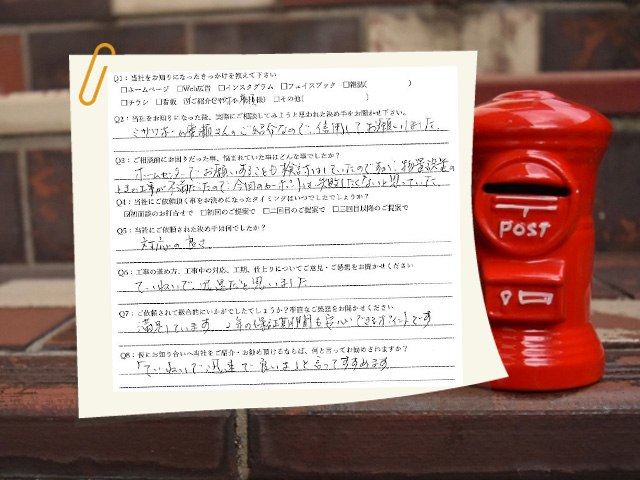 Q1：当社をお知りになったきっかけを教えて下さい
□ホームページ □Web広告 □インスタグラム □フェイスブック □雑誌( )
□チラシ □看板 ☑ご紹介( 様) □その他( )
Q2：当社をお知りになった後、実際にご相談してみようと思われた決め手をお聞かせ下さい。
ミサワホームの さんのご紹介なので、信用してお願いしました。
Q3：ご相談前にお困りだった事、悩まれていた事はどんな事でしたか？
ホームセンターでお願いすることも検討はしていたのであるが、物置設置の
ときの工事が不満だったので今回のカーポートは失敗したくないと思っていた。
Q4：当社にご依頼頂く事をお決めになったタイミングはいつでしたでしょうか？
☑初回面談のお打合せで □初回のご提案で □二回目のご提案で □三回目以降のご提案で
Q5：当社にご依頼された決め手は何でしたか？
対応の良さ
Q6：工事の進め方、工事中の対応、工期、仕上りについてご意見・ご感想をお聞かせください
ていねいで迅速だと思いました
Q7：ご依頼されて総合的にいかがでしたでしょうか？率直なご感想をお聞かせください
満足しています。2年の保証期間も安心できるポイントです
Q8：仮にお知り合いへ当社をご紹介・お勧め頂けるならば、何と言ってお勧めされますか？
「ていねいで迅速で良いよ」と言ってすすめます
POST